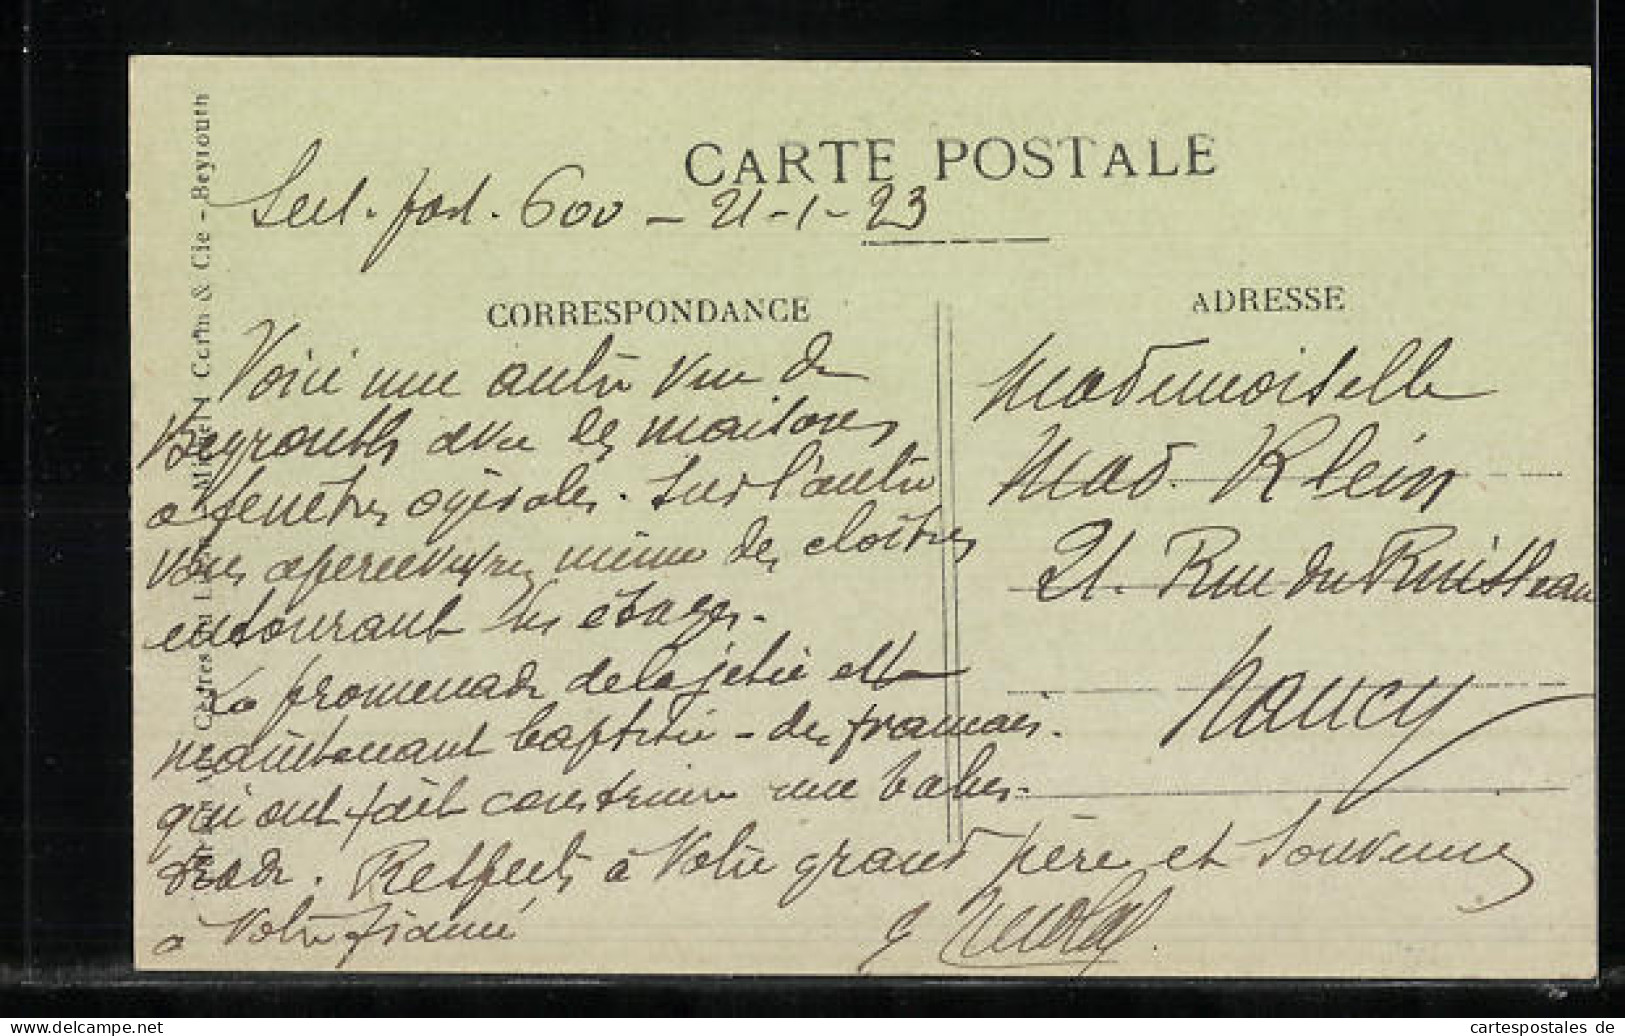 CARTE POSTALE
Sect. post. 600 - 21-1-23
CORRESPONDANCE
Voici une autre vue de
Beyrouth avec les maisons
a fenêtres ogivales. Sur l'autre
vous apercevrez même des cloîtres
entourant les étages.
La promenade de la jetée est
maintenant baptisée - des français
qui ont fait construire une balus-
trade. Respects à votre grand père et souvenirs
à votre fiancé
ADRESSE
Mademoiselle
Mad. Klein
21. Rue du Ruisseau
Nancy
& Cie - Beyrouth
cartespostales de